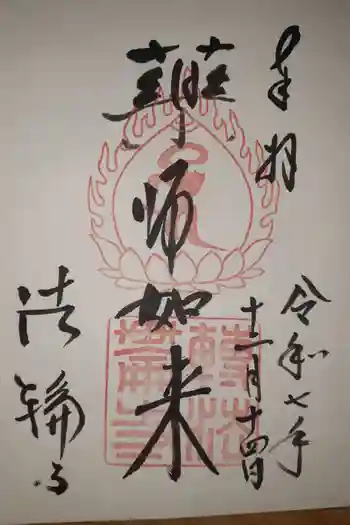 奉拝
令和七年
十一月十四日
薬師如来
法輪寺